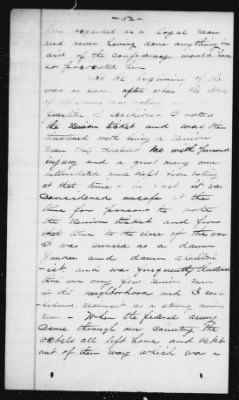 - 52 -
been regarded as a loyal man
and never having done anything in
aid of the Confederacy would have
no
At the beginning of the
war or soon after when the State
of was voting on
question of secession - I voted
the Union ticket and was then
threatened with being a Union
man They threatened me with personal
injury and a great many were
intimidated and kept from voting
at that time - in fact it was
considered unsafe at the
time for persons to vote
the Union ticket and from
that time to the close of the war
I was cursed as a damn
Yankee and damn abolition
-ist and was frequently threatened
there were very few Union men
in the neighborhood and I was
as a strong union
man - When the federal army
came through our country the
rebels all left home and kept
out of their way which was a